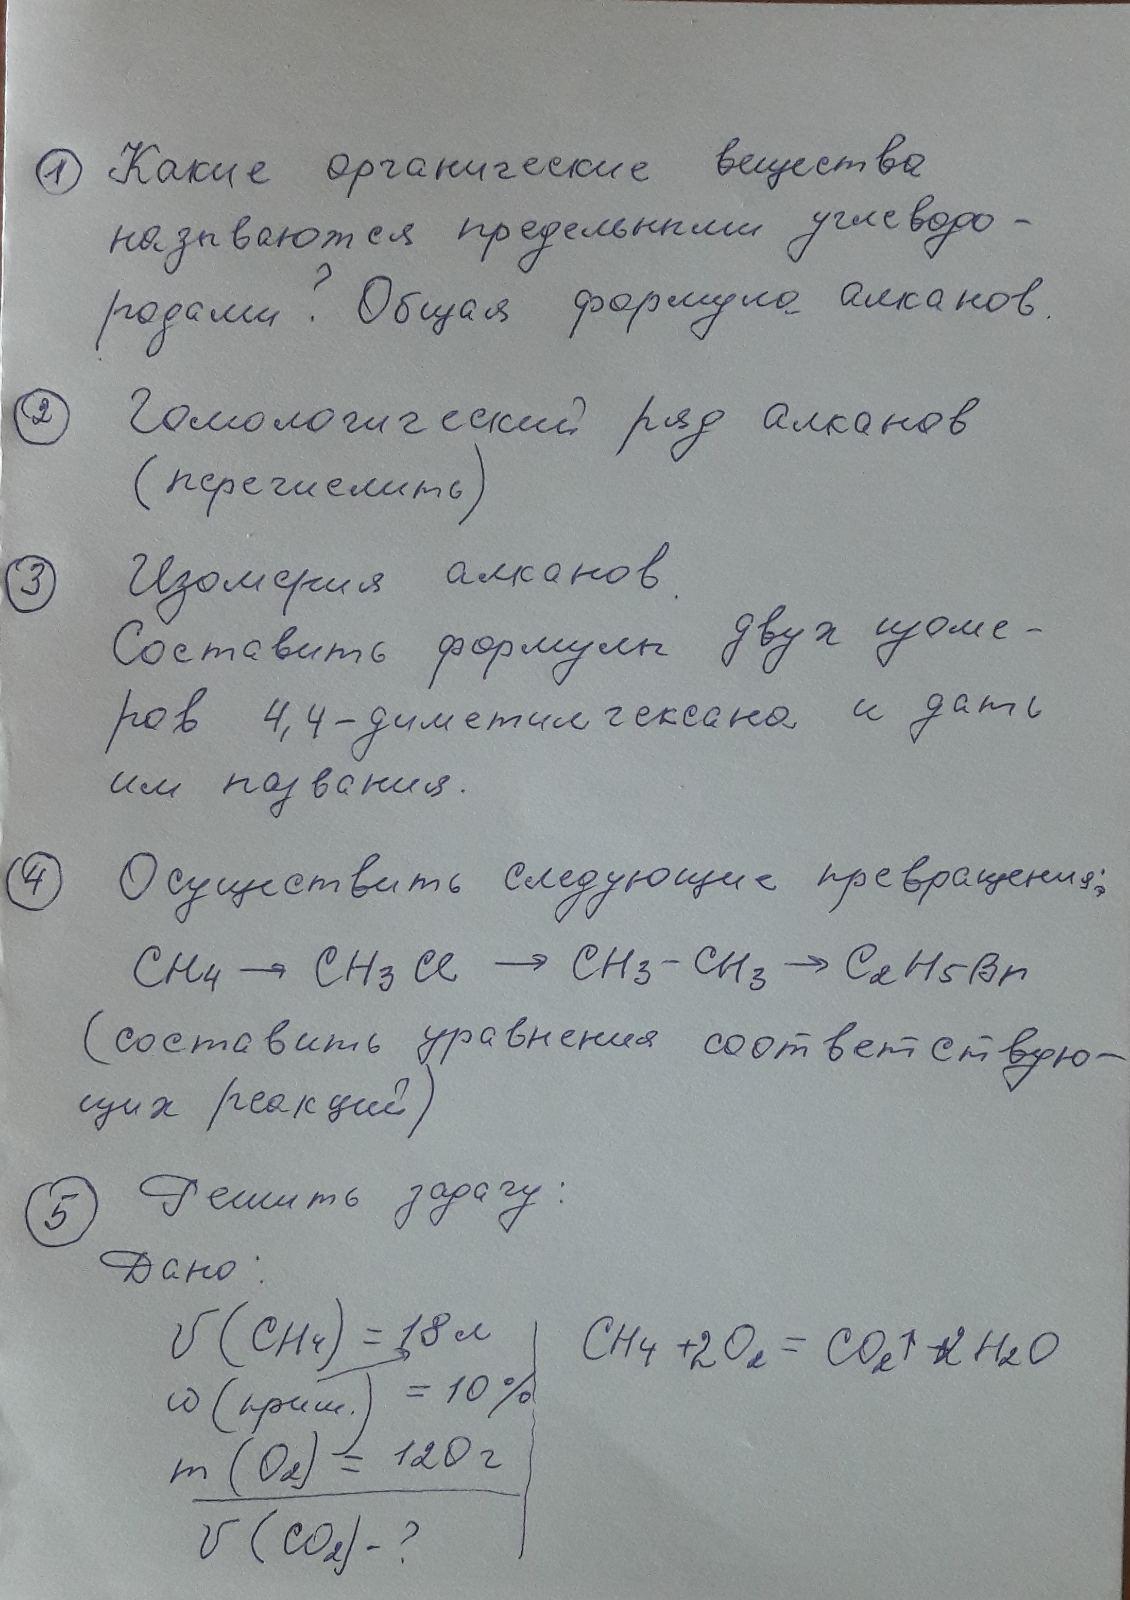 1 Какие органические вещества
называются предельными углеводо-
родами? Общая формула алканов.
2 Гомологический ряд алканов
(перечислить)
3 Изомерия алканов.
Составить формулы двух изоме-
ров 4,4-диметилгексана и дать
им названия.
4 Осуществить следующие превращения:
CH4 → CH3Cl → CH3-CH3 → C2H5Br
(составить уравнения соответствую-
щих реакций)
5 Решить задачу:
Дано:
V(CH4) = 18 л
CH4 + 2O2 = CO2↑ + 2H2O
ω(прим.) = 10%
m(O2) = 120 г
V(CO2) - ?